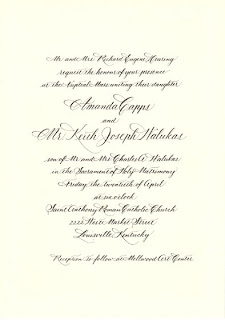 Mr. and Mrs. Richard Eugene Hearing
request the honour of your presence
at the Nuptial Mass uniting their daughter
Amanda Capps
and
Mr. Keith Joseph Walukas
son of Mr. and Mrs. Charles A. Walukas
in the Sacrament of Holy Matrimony
Friday, the twentieth of April
at six o'clock
Saint Anthony Roman Catholic Church
2222 West Market Street
Louisville, Kentucky
Reception to follow at Mellwood Art Center